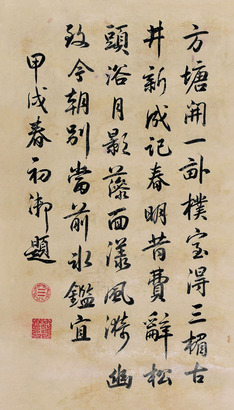 方塘開一畝樸室得三楣古
井新成記春明昔費辭松
頭浴月影面漾風漪幽
致今朝別當前冰鑑宜
甲戌春初御題